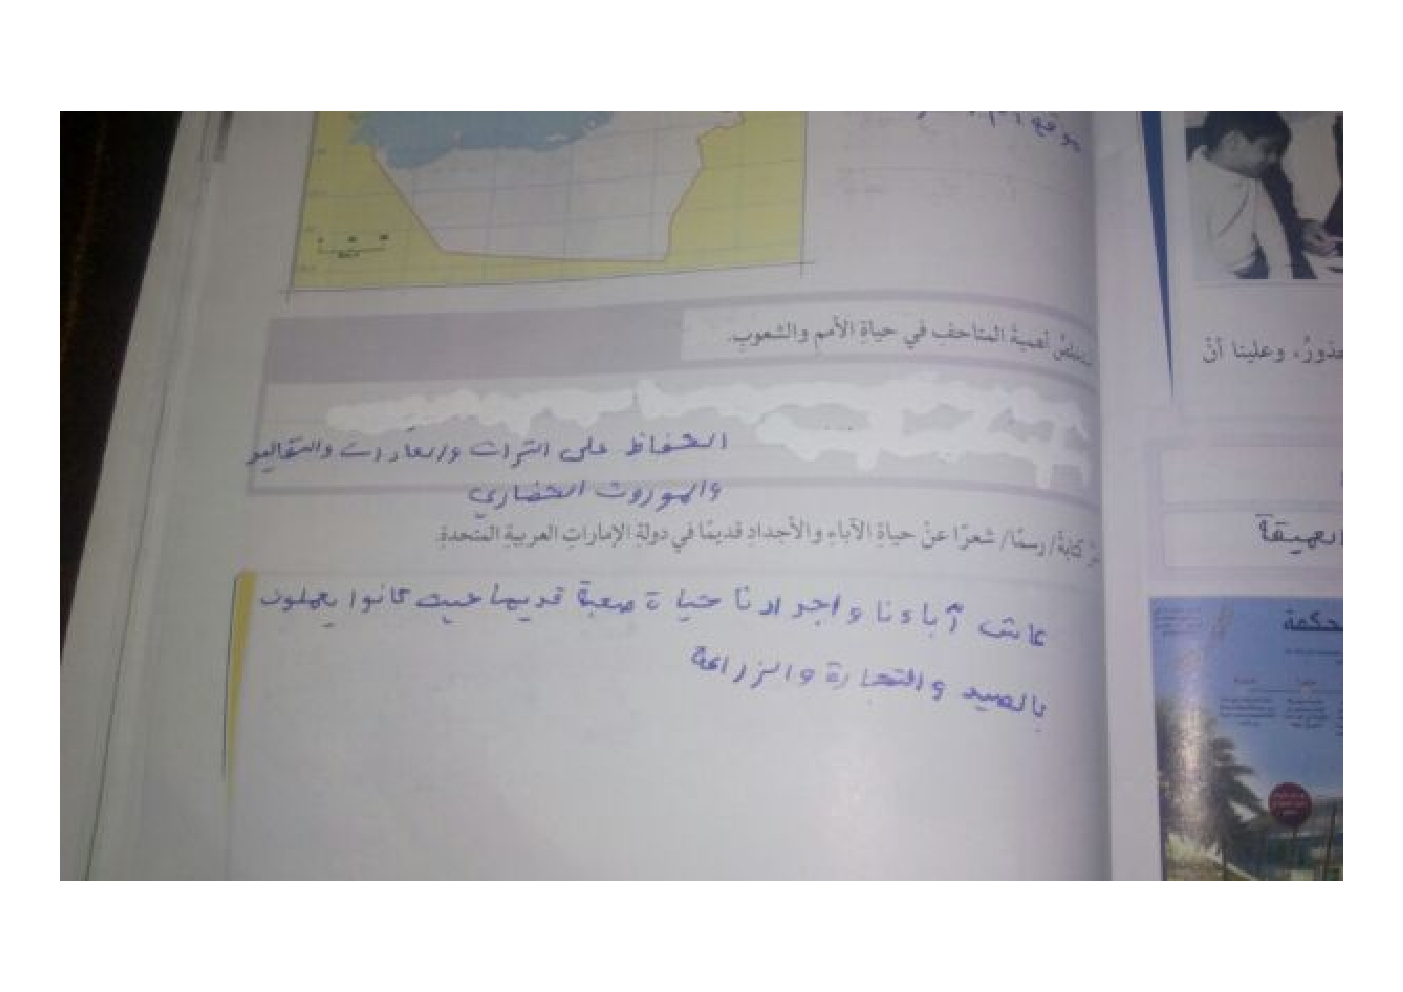 أهمية المتاحف في حياة الأمم والشعوب.
الحفاظ على التراث والعادات والتقاليد
والموروث الحضاري
كتابةً/ رسمًا/ شعرًا عنْ حياةِ الآباءِ والأجدادِ قديمًا في دولةِ الإماراتِ العربيةِ المتّحدةِ.
عاش آباءنا واجدادنا حياة صعبة قديما حيث كانوا يعملون
بالصيد والتجارة والزراعة
وعلينا أنْ
العميقة